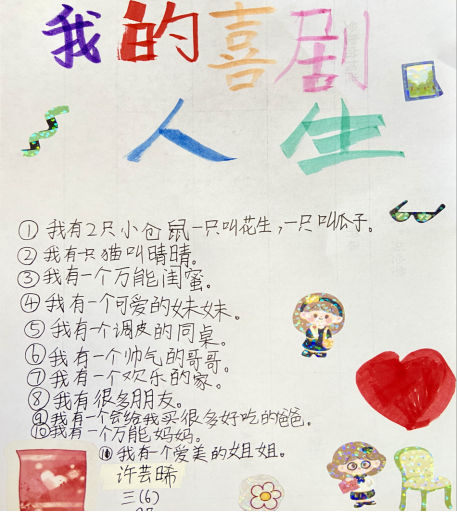 我的喜剧
人生
①我有2只小仓鼠一只叫花生,一只叫瓜子。
②我有一只猫叫晴晴。
③我有一个万能闺蜜。
④我有一个可爱的妹妹。
⑤我有一个调皮的同桌。
⑥我有一个帅气的哥哥。
⑦我有一个欢乐的家。
⑧我有很多朋友。
⑨我有一个会给我买很多好吃的爸爸。
⑩我有一个万能妈妈。
⑪我有一个爱美的姐姐。
许芸晞
三(6)